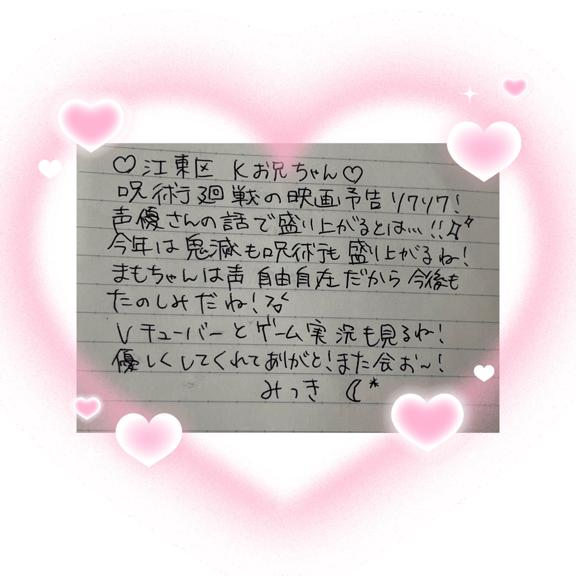 ♡江東区 Kお兄ちゃん♡
呪術廻戦の映画予告ソワソワ!
声優さんの話で盛り上がるとは…!!
今年は鬼滅も呪術も盛り上がるね!
まもちゃんは声自由自在だから今後も
たのしみだね!
Vチューバーとゲーム実況も見るね!
優しくしてくれてありがと!また会お〜!
みつき ☾*